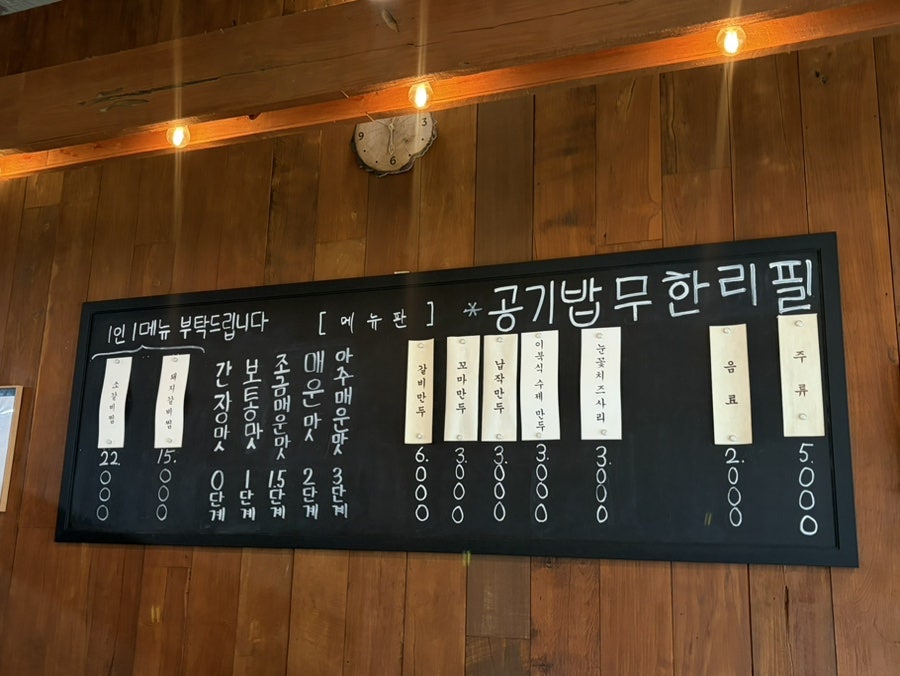 1인 1메뉴 부탁드립니다
[메뉴판]
*공기밥무한리필
소갈비찜 22.000
돼지갈비찜 15.000
간장맛 0단계
보통맛 1단계
조금매운맛 1.5단계
매운맛 2단계
아주매운맛 3단계
갈비만두 6.000
꼬마만두 3.000
납작만두 3.000
이북식 수제 만두 3.000
눈꽃치즈사리 3.000
음료 2.000
주류 5.000
9
3
6